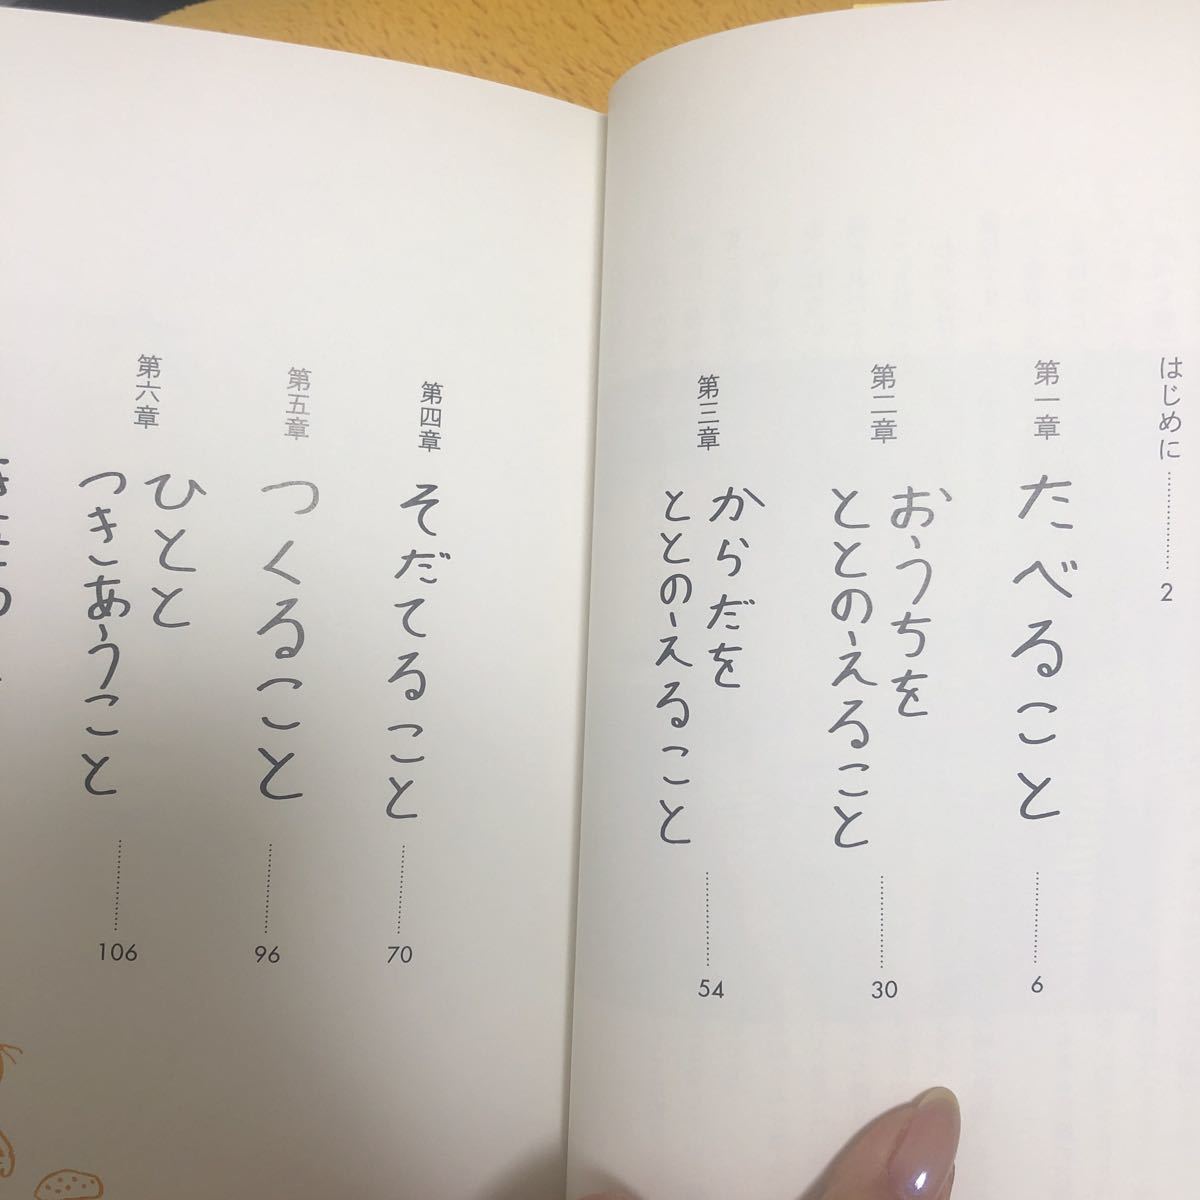 はじめに…………2
第一章 たべること…………6
第二章 おうちを
ととのえること…………30
第三章 からだを
ととのえること…………54
第四章 そだてること…………70
第五章 つくること…………96
第六章 ひとと
つきあうこと…………106